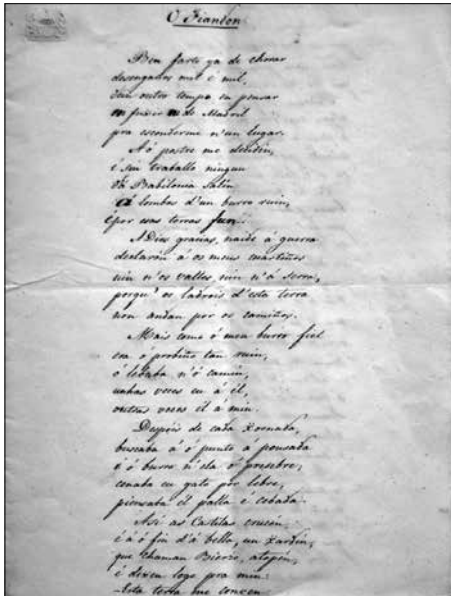 O Fiandon
Ben farto ya de chorar
desengaños mil e mil,
deu outro tempo en pensar
en fuxir me de Madril
pra esconderme n'un lugar.
Aó postre me decidin,
é sin traballo ningun
da Babilonia salin
á lombas d'un burro ruin,
é por esas terras fun.
A Dios gracias, naide á guerra
declarón á os meus cuartiños
nin n'os valles, nin n'á serra,
porqu' os ladrois d'esta terra
non andan por os camiños.
Mais como ó meu burro fiel
era o probiño tan ruin,
ó levaba n'ó camin,
unhas veces eu á él,
outras veces él á min.
Despois de cada xornada,
buscaba á ó punto á pousada
e ó burro n'ela ó presebre;
cenaba eu gato por lebre,
piensaba él palla é cebada.
Asi as Castilas crucén,
é á ó fin d'á bella, un xardin,
que chaman Bierzo, atopén,
é dixen logo pra min:
-Esta terra me conven